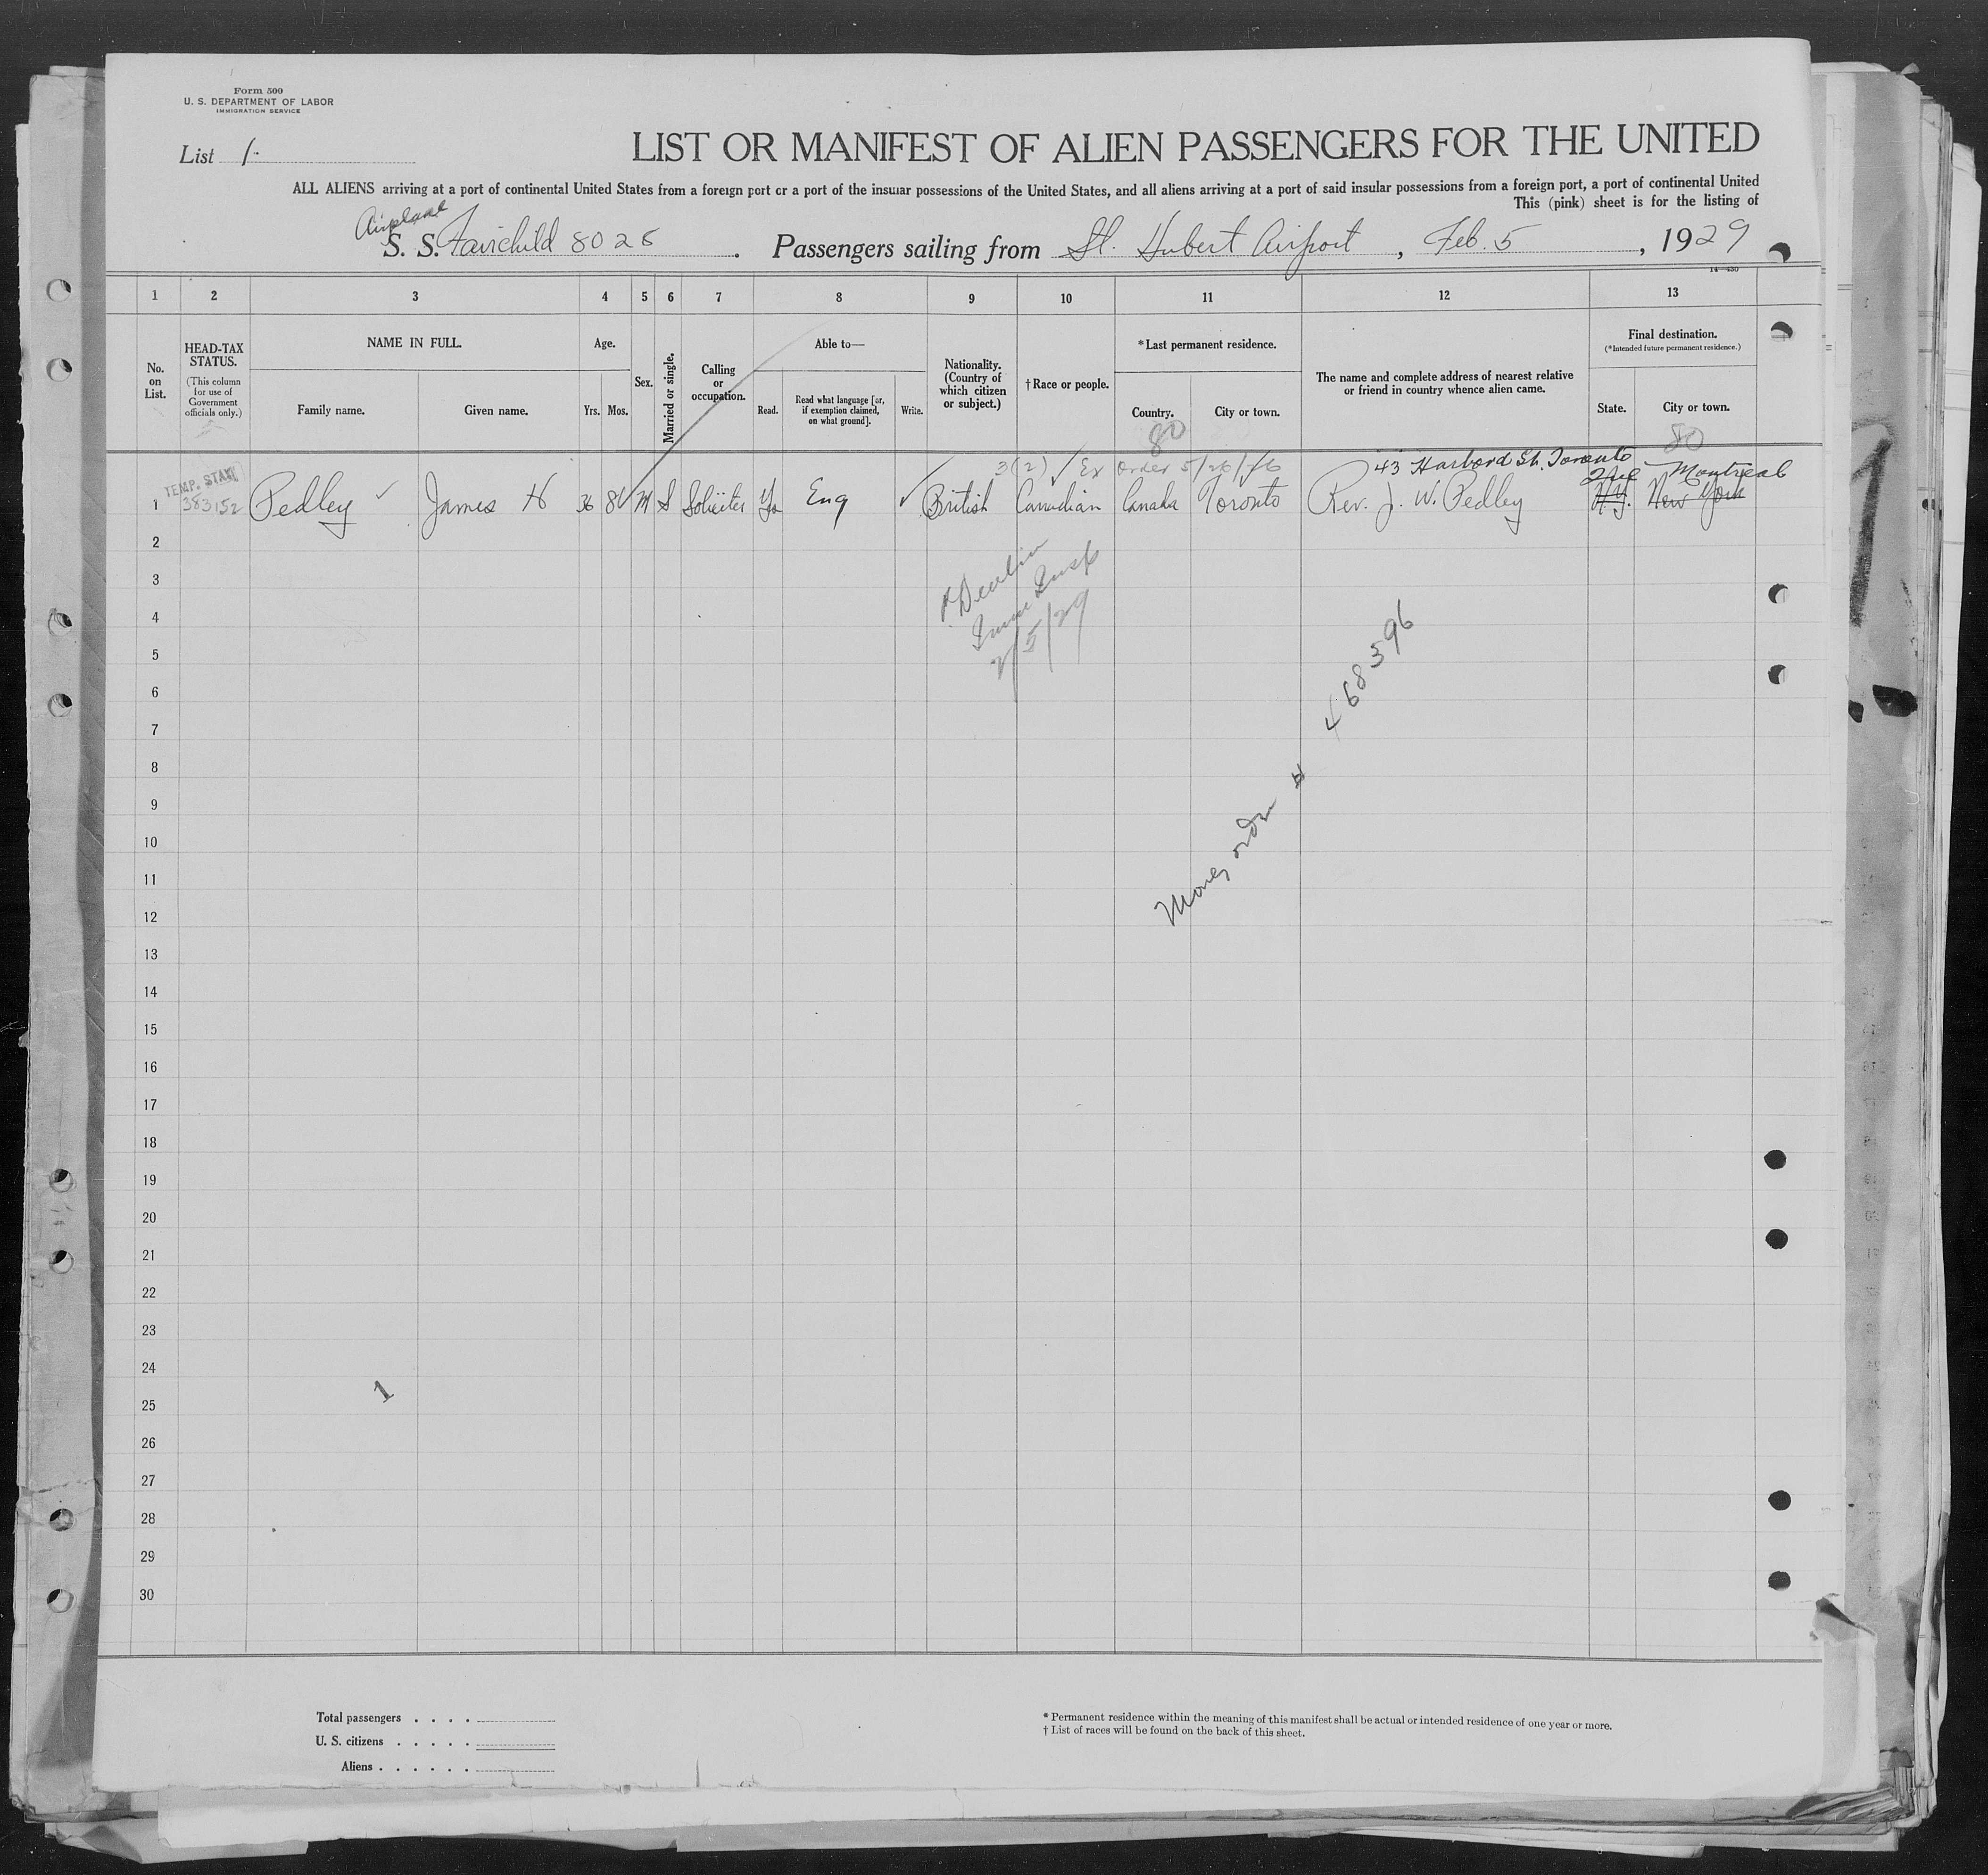 Form 500
U. S. DEPARTMENT OF LABOR
IMMIGRATION SERVICE
List 1.
LIST OR MANIFEST OF ALIEN PASSENGERS FOR THE UNITED
ALL ALIENS arriving at a port of continental United States from a foreign port or a port of the insular possessions of the United States, and all aliens arriving at a port of said insular possessions from a foreign port, a port of continental United
This (pink) sheet is for the listing of
Airplane
S. S. Fairchild 8028. Passengers sailing from St. Hubert Airport, Feb. 5, 1929
14—430
1 2 3 4 5 6 7 8 9 10 11 12 13
No. on List.
HEAD-TAX STATUS.
(This column for use of Government officials only.)
NAME IN FULL.
Family name. Given name.
Age.
Yrs. Mos.
Sex.
Married or single.
Calling or occupation.
Able to—
Read. Read what language [or, if exemption claimed, on what ground]. Write.
Nationality. (Country of which citizen or subject.)
† Race or people.
* Last permanent residence.
Country. City or town.
The name and complete address of nearest relative or friend in country whence alien came.
Final destination.
(* Intended future permanent residence.)
State. City or town.
80 80
3(2) ✓ Ex order 5/26/26 43 Harbord St. Toronto
TEMP. STAY Que Montreal
1 383152 Pedley ✓ James H 36 8 M S Solicitor Yes Eng ✓ British Canadian Canada Toronto Rev. J. W. Pedley N.Y. New York
2
3
4
5
6
7
8
9
10
11
12
13
14
15
16
17
18
19
20
21
22
23
24
25
26
27
28
29
30
Devlin
Imm Insp
2/5/29
Money order # 468396
1
Total passengers . . . .
U. S. citizens . . . . .
Aliens . . . . . .
* Permanent residence within the meaning of this manifest shall be actual or intended residence of one year or more.
† List of races will be found on the back of this sheet.
1